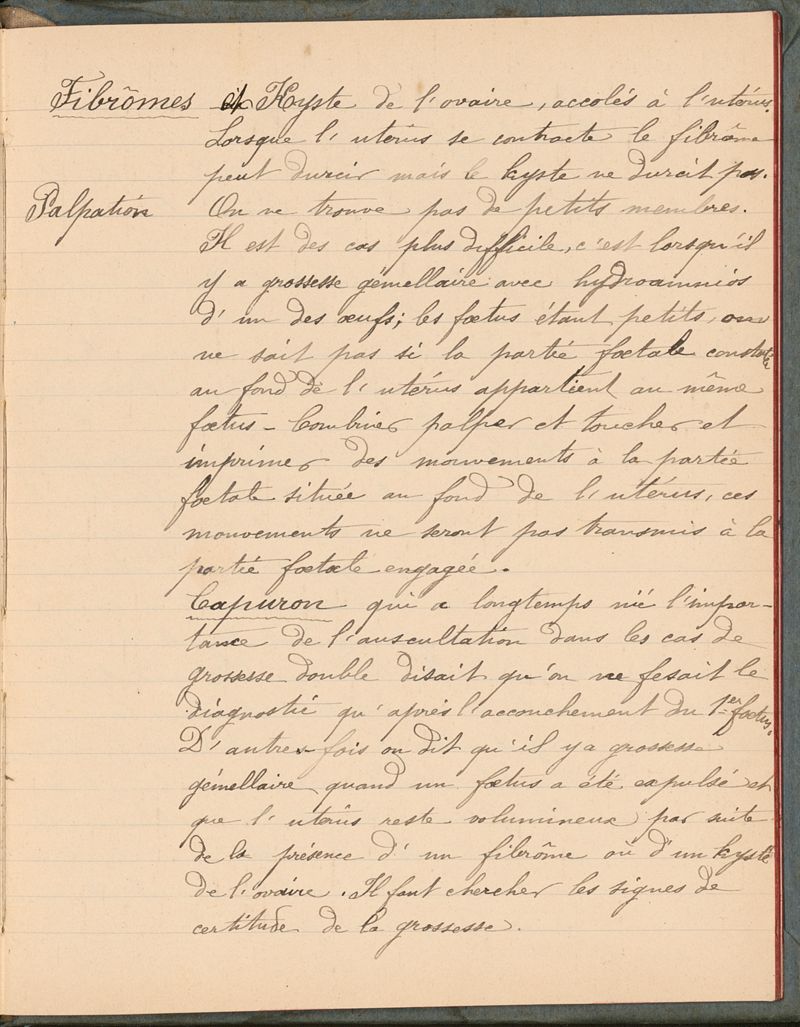 Fibrômes et Kyste de l'ovaire, accolés à l'utérus.
Lorsque l'utérus se contracte le fibrôme
peut durcir mais le kyste ne durcit pas.
Palpation On ne trouve pas de petits membres.
Il est des cas plus difficile, c'est lorsqu'il
y a grossesse gémellaire avec hydroamnios
d'un des œufs; les fœtus étant petits, on
ne sait pas si la partie fœtale constatée
au fond de l'utérus appartient au même
fœtus - Combiner palper et toucher et
imprimer des mouvements à la partie
fœtale située au fond de l'utérus, ces
mouvements ne seront pas transmis à la
partie fœtale engagée.
Capuron qui a longtemps nié l'impor-
tance de l'auscultation dans les cas de
grossesse double disait qu'on ne fesait le
diagnostic qu'après l'accouchement du 1er fœtus.
D'autres fois on dit qu'il y a grossesse
gémellaire quand un fœtus a été expulsé et
que l'utérus reste volumineux par suite
de la présence d'un fibrôme où d'un kyste
de l'ovaire. Il faut chercher les signes de
certitude de la grossesse.